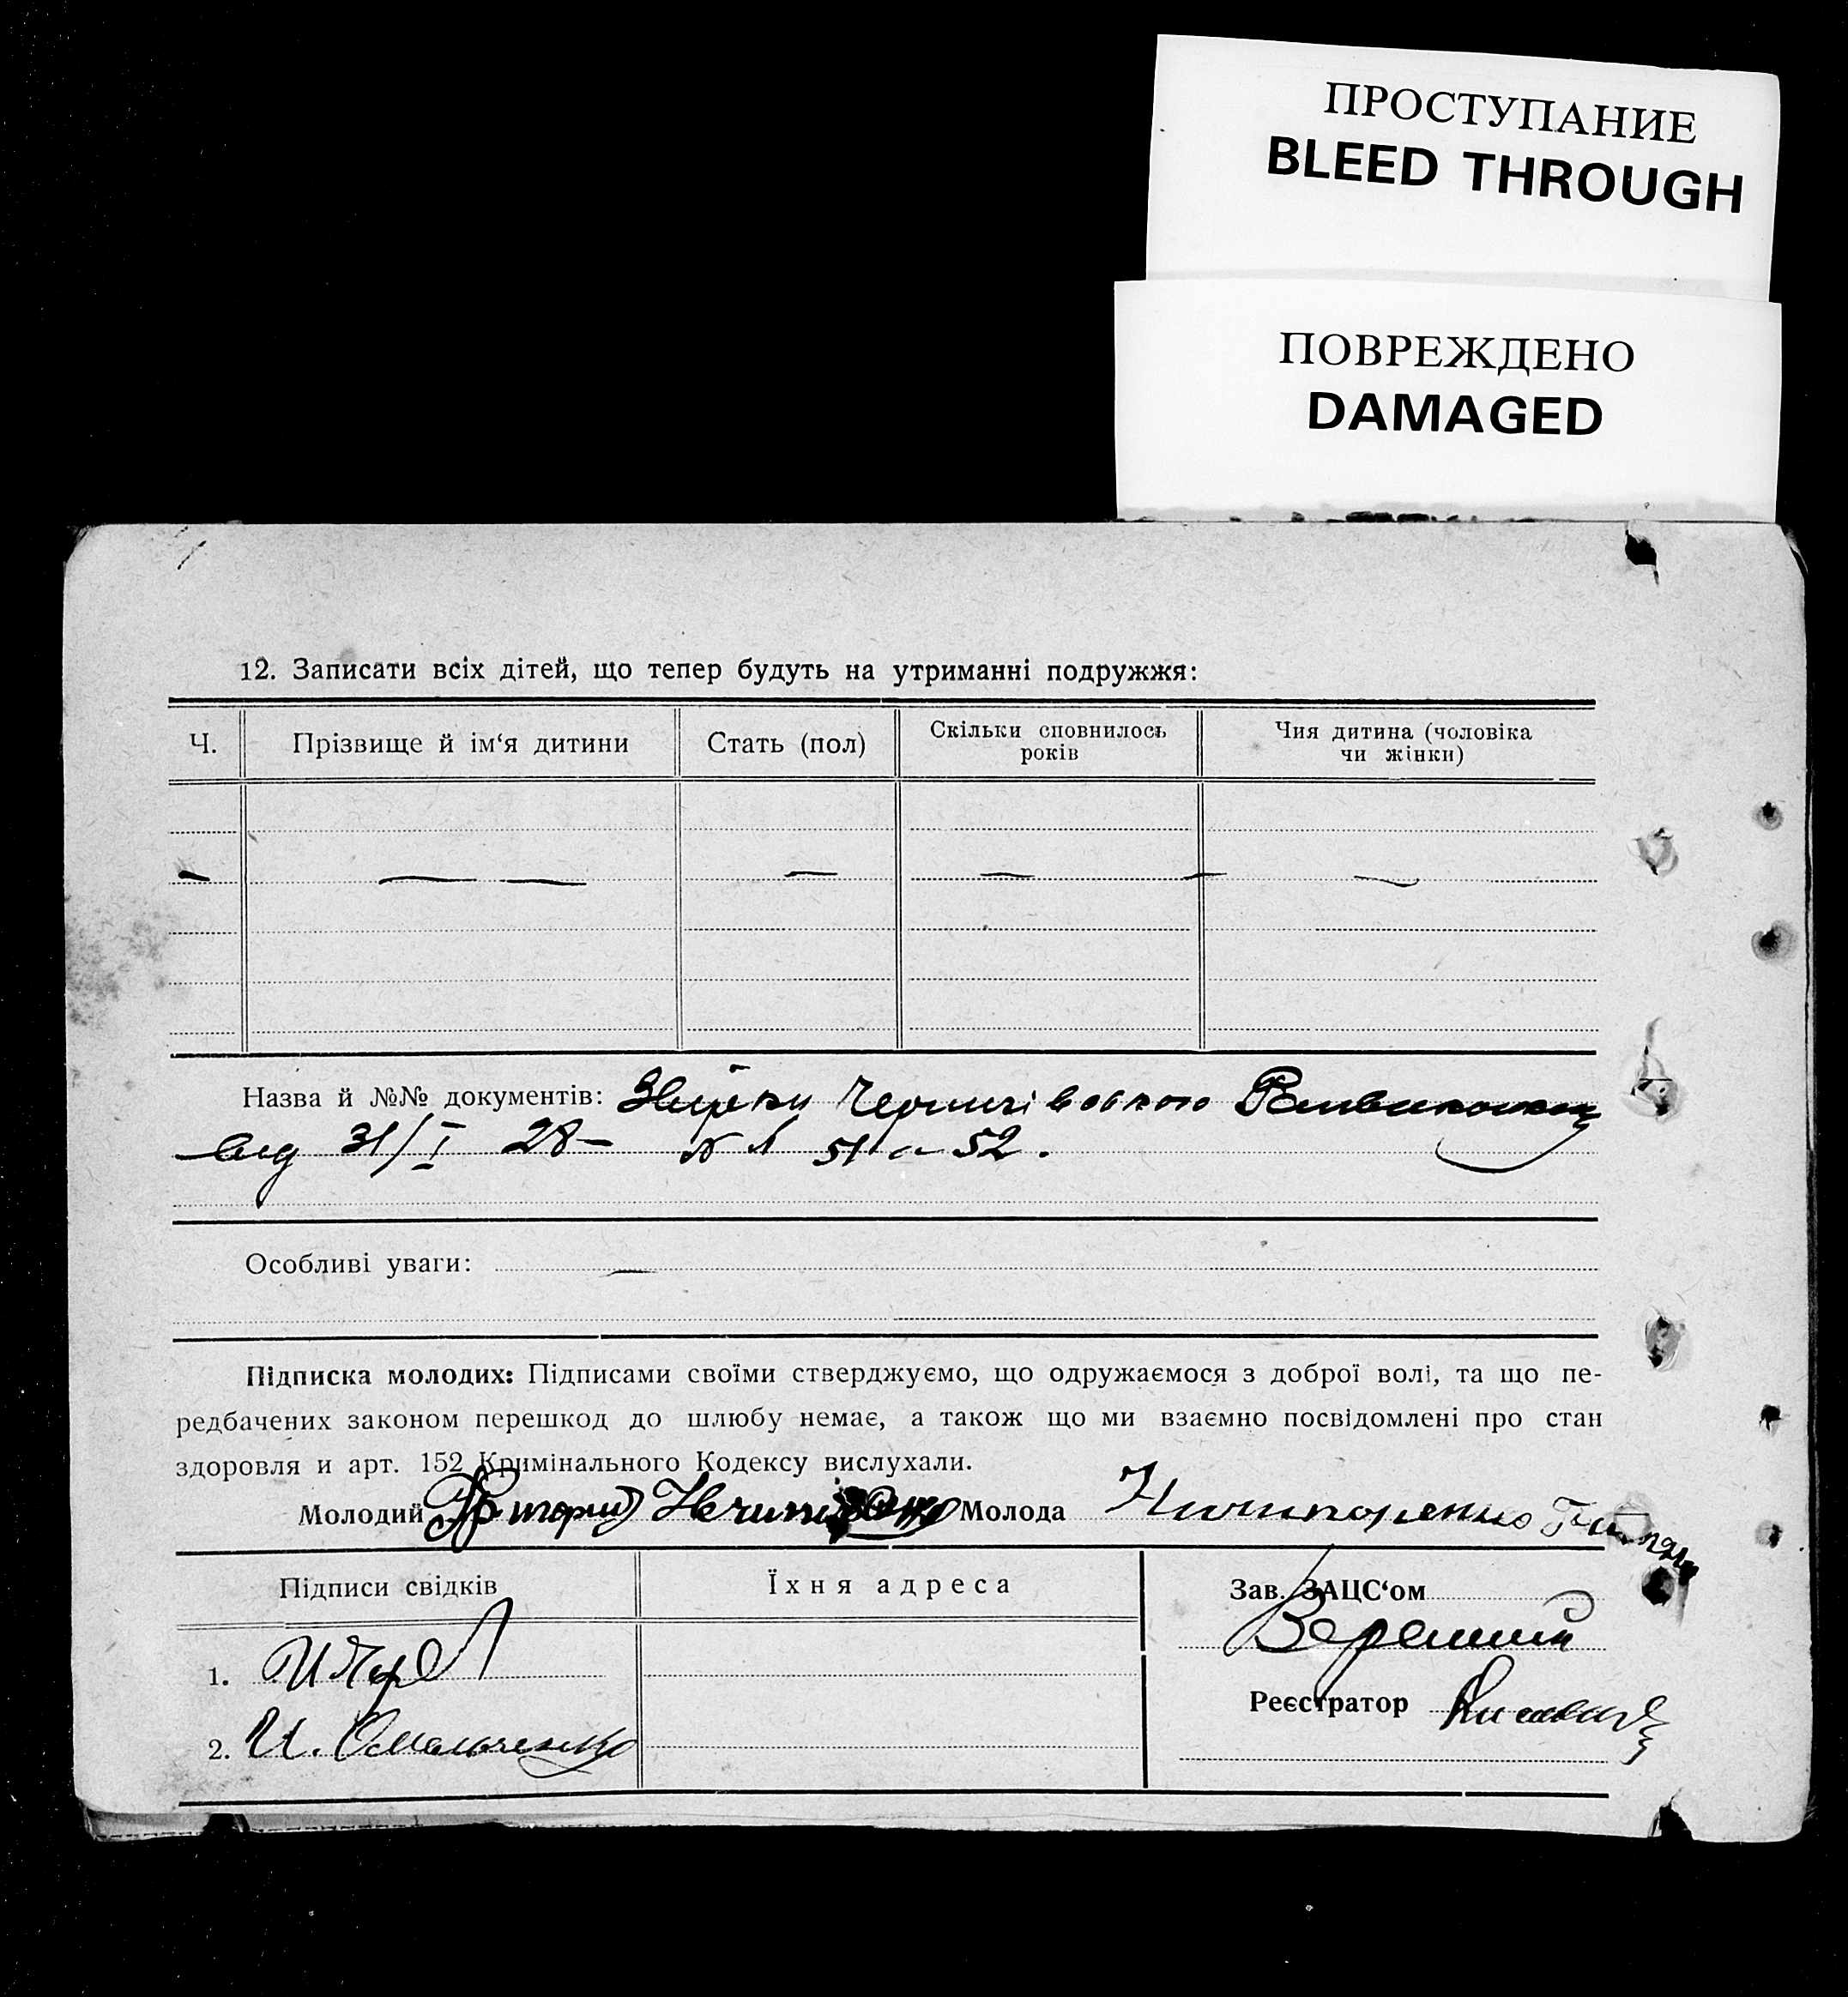 ПРОСТУПАНИЕ
BLEED THROUGH
ПОВРЕЖДЕНО
DAMAGED
12. Записати всіх дітей, що тепер будуть на утриманні подружжя:
Ч. Прізвище й ім‘я дитини Стать (пол) Скільки сповнилось років Чия дитина (чоловіка чи жінки)
— — — — — — —
Назва й №№ документів:
від 31/I 28 – № 51 и 52.
Особливі уваги: —
Підписка молодих: Підписами своїми стверджуємо, що одружаємося з доброї волі, та що пе-
редбачених законом перешкод до шлюбу немає, а також що ми взаємно посвідомлені про стан
здоровля и арт. 152 Кримінального Кодексу вислухали.
Молодий Молода Ничипоренко
Підписи свідків Їхня адреса Зав. ЗАЦС‘ом
1.
Реєстратор
2. И. Омельченко